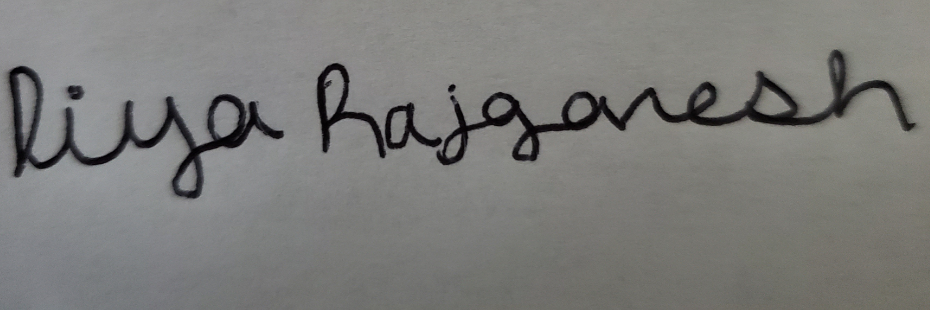 Riya Rajganesh